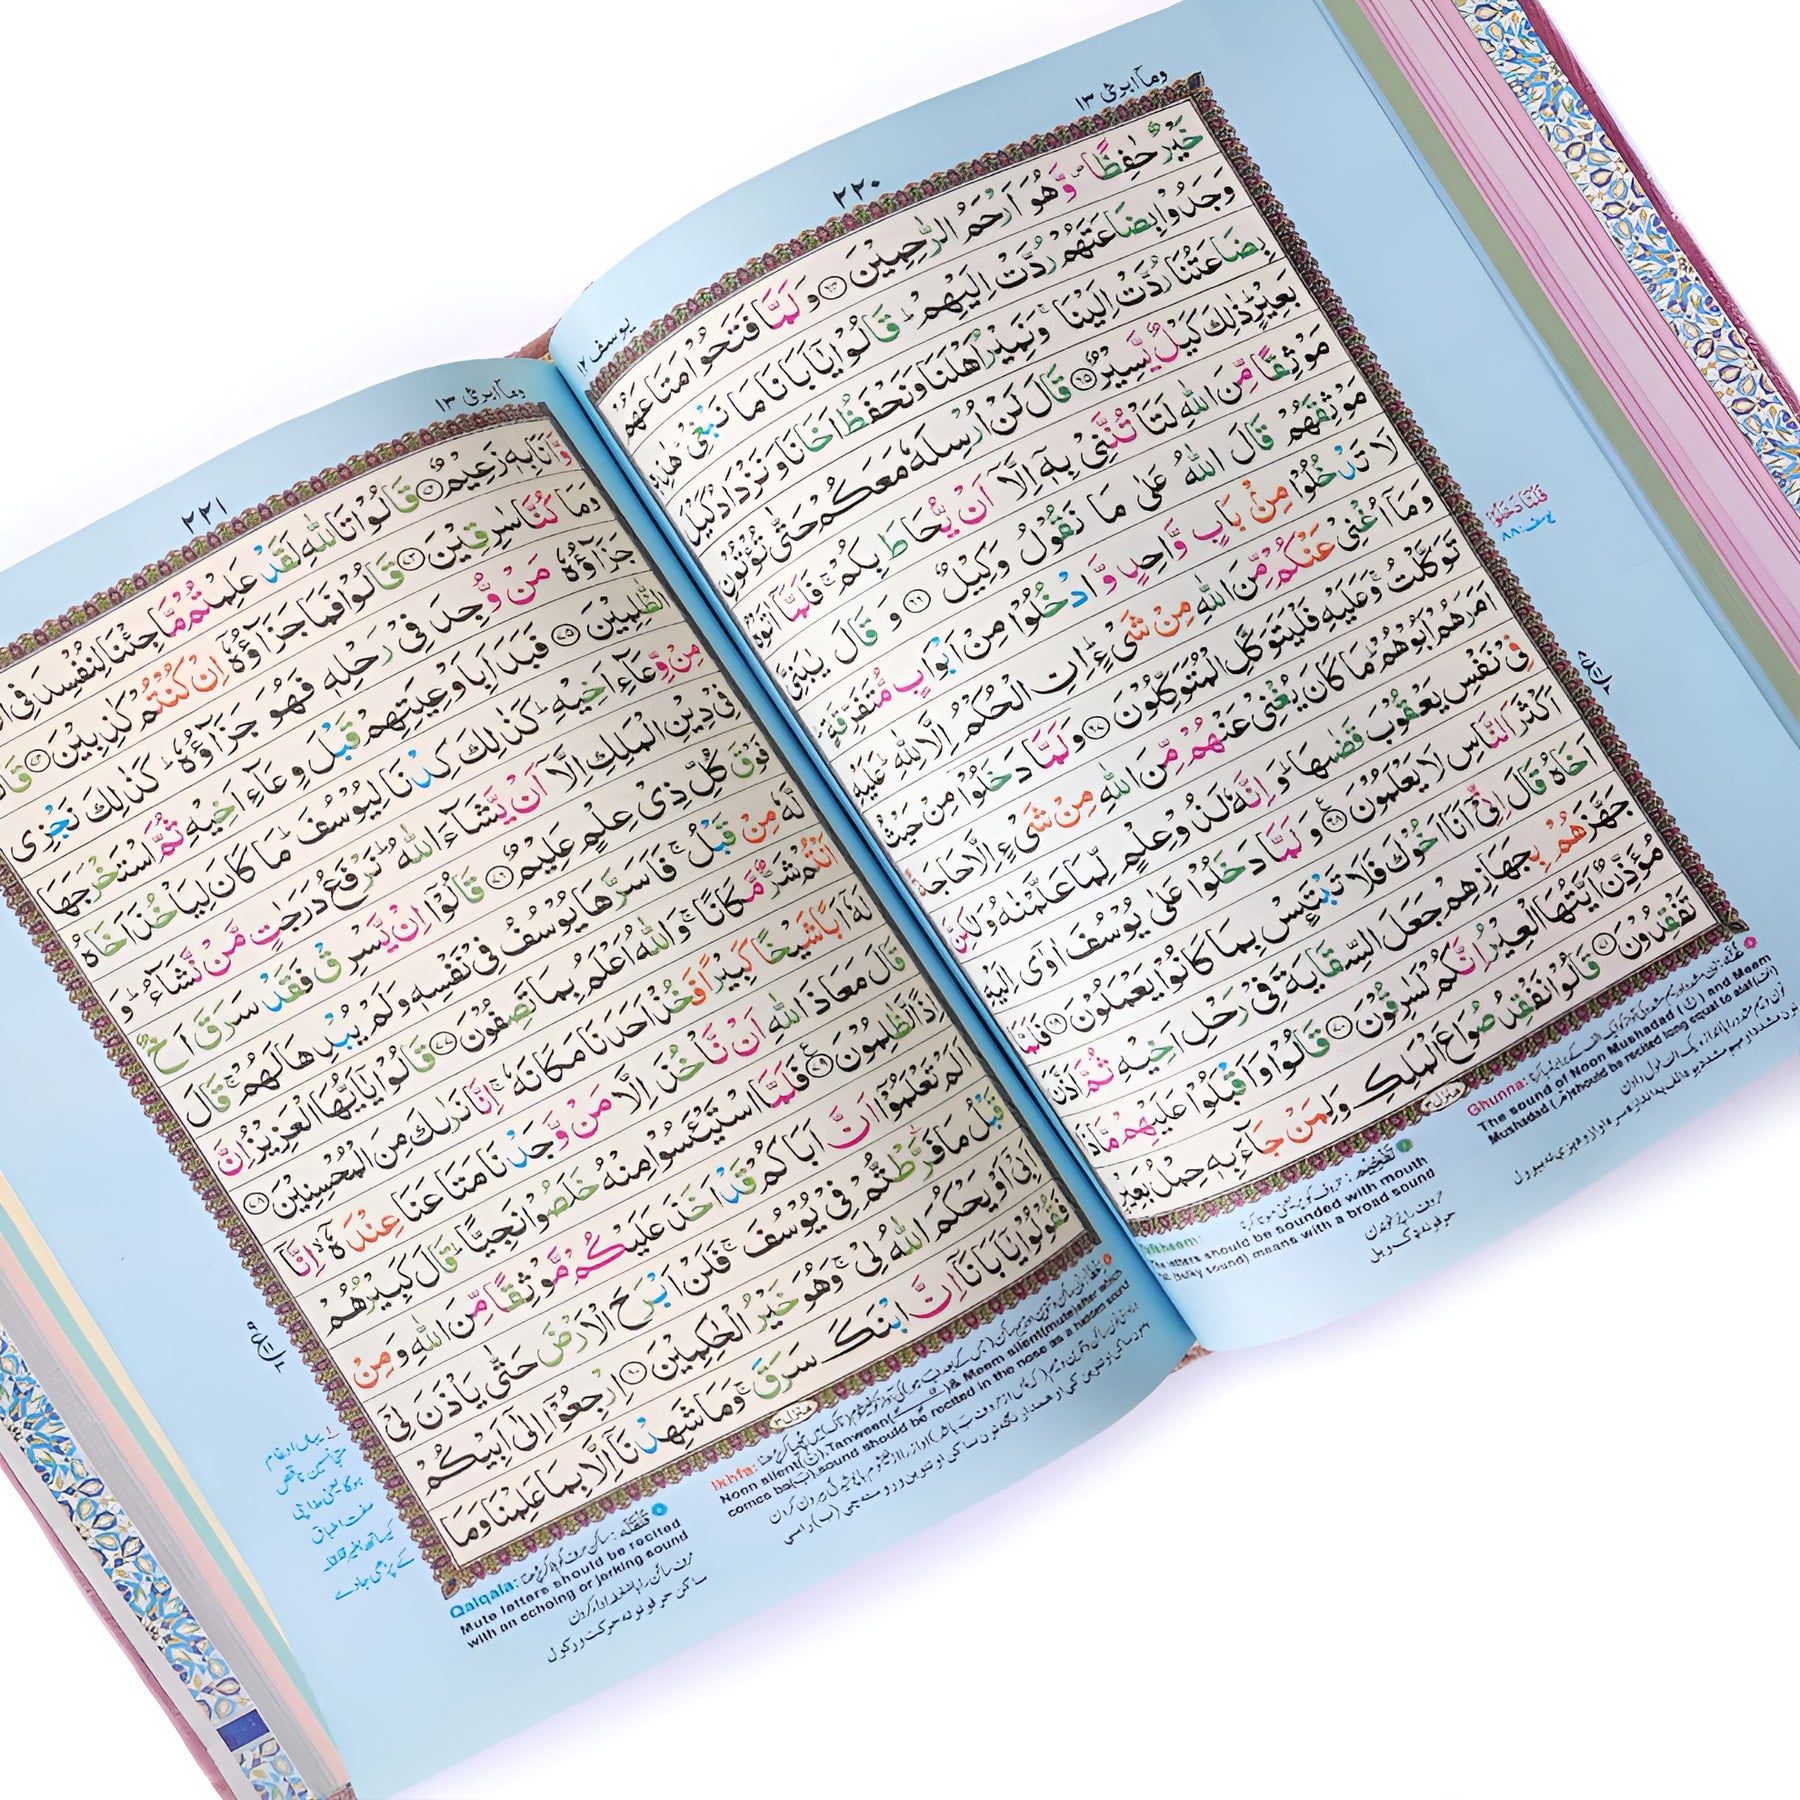 وماۤ ابرئ ١٣
٢٢٠
يوسف ١٢
خَيْرٌ حٰفِظًا ۪ وَّهُوَ اَرْحَمُ الرّٰحِمِيْنَ ﴿٦٤﴾ وَ لَمَّا فَتَحُوْا مَتَاعَهُمْ
وَجَدُوْا بِضَاعَتَهُمْ رُدَّتْ اِلَيْهِمْ ؕ قَالُوْا يٰۤاَبَانَا مَا نَبْغِيْ ؕ هٰذِهٖ
بِضَاعَتُنَا رُدَّتْ اِلَيْنَا ۚ وَنَمِيْرُ اَهْلَنَا وَنَحْفَظُ اَخَانَا وَنَزْدَادُ كَيْلَ
بَعِيْرٍ ؕ ذٰلِكَ كَيْلٌ يَّسِيْرٌ ﴿٦٥﴾ قَالَ لَنْ اُرْسِلَهٗ مَعَكُمْ حَتّٰى تُؤْتُوْنِ
مَوْثِقًا مِّنَ اللّٰهِ لَتَاْتُنَّنِيْ بِهٖۤ اِلَّاۤ اَنْ يُّحَاطَ بِكُمْ ۚ فَلَمَّاۤ اٰتَوْهُ
مَوْثِقَهُمْ قَالَ اللّٰهُ عَلٰى مَا نَقُوْلُ وَكِيْلٌ ﴿٦٦﴾ وَ قَالَ يٰبَنِيَّ
لَا تَدْخُلُوْا مِنْۢ بَابٍ وَّاحِدٍ وَّ ادْخُلُوْا مِنْ اَبْوَابٍ مُّتَفَرِّقَةٍ ؕ
وَمَاۤ اُغْنِيْ عَنْكُمْ مِّنَ اللّٰهِ مِنْ شَيْءٍ ؕ اِنِ الْحُكْمُ اِلَّا لِلّٰهِ ؕ عَلَيْهِ
تَوَكَّلْتُ ۚ وَعَلَيْهِ فَلْيَتَوَكَّلِ الْمُتَوَكِّلُوْنَ ﴿٦٧﴾ وَلَمَّا دَخَلُوْا مِنْ حَيْثُ
اَمَرَهُمْ اَبُوْهُمْ ؕ مَا كَانَ يُغْنِيْ عَنْهُمْ مِّنَ اللّٰهِ مِنْ شَيْءٍ اِلَّا حَاجَةً
فِيْ نَفْسِ يَعْقُوْبَ قَضٰىهَا ؕ وَ اِنَّهٗ لَذُوْ عِلْمٍ لِّمَا عَلَّمْنٰهُ وَلٰكِنَّ
اَكْثَرَ النَّاسِ لَا يَعْلَمُوْنَ ﴿٦٨﴾ وَ لَمَّا دَخَلُوْا عَلٰى يُوْسُفَ اٰوٰۤى اِلَيْهِ
اَخَاهُ قَالَ اِنِّيْۤ اَنَا اَخُوْكَ فَلَا تَبْتَئِسْ بِمَا كَانُوْا يَعْمَلُوْنَ ﴿٦٩﴾ فَلَمَّا
جَهَّزَهُمْ بِجَهَازِهِمْ جَعَلَ السِّقَايَةَ فِيْ رَحْلِ اَخِيْهِ ثُمَّ اَذَّنَ
مُؤَذِّنٌ اَيَّتُهَا الْعِيْرُ اِنَّكُمْ لَسٰرِقُوْنَ ﴿٧٠﴾ قَالُوْا وَاَقْبَلُوْا عَلَيْهِمْ مَّاذَا
تَفْقِدُوْنَ ﴿٧١﴾ قَالُوْا نَفْقِدُ صُوَاعَ الْمَلِكِ وَلِمَنْ جَآءَ بِهٖ حِمْلُ بَعِيْرٍ
منزل ٣
Ghunna:
The sound of Noon Mushadad (نّ) and Meem
Mushadad (مّ) should be recited long equal to alaf
تَفْخِيْم :
letters should be sounded with mouth
(bulky sound) means with a broad sound
وماۤ ابرئ ١٣
٢٢١
وَّاَنَا بِهٖ زَعِيْمٌ ﴿٧٢﴾ قَالُوْا تَاللّٰهِ لَقَدْ عَلِمْتُمْ مَّا جِئْنَا لِنُفْسِدَ فِي
وَمَا كُنَّا سٰرِقِيْنَ ﴿٧٣﴾ قَالُوْا فَمَا جَزَآؤُهٗۤ اِنْ كُنْتُمْ كٰذِبِيْنَ ﴿٧٤﴾
جَزَآؤُهٗ مَنْ وُّجِدَ فِيْ رَحْلِهٖ فَهُوَ جَزَآؤُهٗ ؕ كَذٰلِكَ نَجْزِي
الظّٰلِمِيْنَ ﴿٧٥﴾ فَبَدَاَ بِاَوْعِيَتِهِمْ قَبْلَ وِعَآءِ اَخِيْهِ ثُمَّ اسْتَخْرَجَهَا
مِنْ وِّعَآءِ اَخِيْهِ ؕ كَذٰلِكَ كِدْنَا لِيُوْسُفَ ؕ مَا كَانَ لِيَاْخُذَ اَخَاهُ
فِيْ دِيْنِ الْمَلِكِ اِلَّاۤ اَنْ يَّشَآءَ اللّٰهُ ؕ نَرْفَعُ دَرَجٰتٍ مَّنْ نَّشَآءُ ؕ وَ
فَوْقَ كُلِّ ذِيْ عِلْمٍ عَلِيْمٌ ﴿٧٦﴾ قَالُوْۤا اِنْ يَّسْرِقْ فَقَدْ سَرَقَ اَخٌ
لَّهٗ مِنْ قَبْلُ ۚ فَاَسَرَّهَا يُوْسُفُ فِيْ نَفْسِهٖ وَلَمْ يُبْدِهَا لَهُمْ ۚ قَالَ
اَنْتُمْ شَرٌّ مَّكَانًا ۚ وَاللّٰهُ اَعْلَمُ بِمَا تَصِفُوْنَ ﴿٧٧﴾ قَالُوْا يٰۤاَيُّهَا الْعَزِيْزُ اِنَّ
لَهٗۤ اَبًا شَيْخًا كَبِيْرًا فَخُذْ اَحَدَنَا مَكَانَهٗ ۚ اِنَّا نَرٰىكَ مِنَ الْمُحْسِنِيْنَ ﴿٧٨﴾
قَالَ مَعَاذَ اللّٰهِ اَنْ نَّاْخُذَ اِلَّا مَنْ وَّجَدْنَا مَتَاعَنَا عِنْدَهٗۤ ۙ اِنَّاۤ
اِذًا لَّظٰلِمُوْنَ ﴿٧٩﴾ فَلَمَّا اسْتَيْـَٔسُوْا مِنْهُ خَلَصُوْا نَجِيًّا ؕ قَالَ كَبِيْرُهُمْ
اَلَمْ تَعْلَمُوْۤا اَنَّ اَبَاكُمْ قَدْ اَخَذَ عَلَيْكُمْ مَّوْثِقًا مِّنَ اللّٰهِ وَ مِنْ
قَبْلُ مَا فَرَّطْتُّمْ فِيْ يُوْسُفَ ۚ فَلَنْ اَبْرَحَ الْاَرْضَ حَتّٰى يَاْذَنَ لِيْۤ
اَبِيْۤ اَوْ يَحْكُمَ اللّٰهُ لِيْ ۚ وَهُوَ خَيْرُ الْحٰكِمِيْنَ ﴿٨٠﴾ اِرْجِعُوْۤا اِلٰۤى اَبِيْكُمْ
فَقُوْلُوْا يٰۤاَبَانَاۤ اِنَّ ابْنَكَ سَرَقَ ۚ وَمَا شَهِدْنَاۤ اِلَّا بِمَا عَلِمْنَا وَمَا
منزل ٣
Ikhfa:
Noon silent(نْ), Tanween & Meem silent(mute)after which
comes ba(ب),sound should be recited in the nose as a hidden sound
Qalqala:
قَلْقَلَه :
Mute letters should be recited
with an echoing or jerking sound